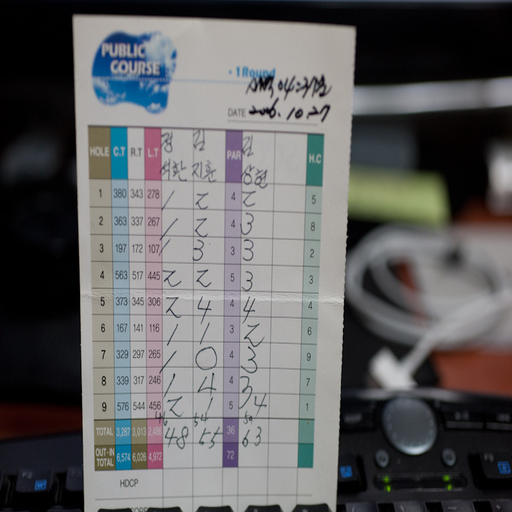 PUBLIC COURSE
• 1 Round
DATE 2006. 10. 27
HOLE C.T R.T L.T 김 PAR 김 H.C
지훈 상현
1 380 343 278 1 2 4 2 5
2 363 337 267 1 2 4 3 8
3 197 172 107 1 3 3 3 2
4 563 517 445 2 2 5 3 3
5 373 345 306 2 4 4 4 4
6 167 141 116 1 1 3 2 6
7 329 297 265 1 0 4 3 9
8 339 317 246 1 4 4 3 7
9 576 544 456 2 1 5 4 1
TOTAL 3,287 3,013 2,486 48 55 36 63
OUT-IN TOTAL 6,574 6,026 4,972 72
HDCP